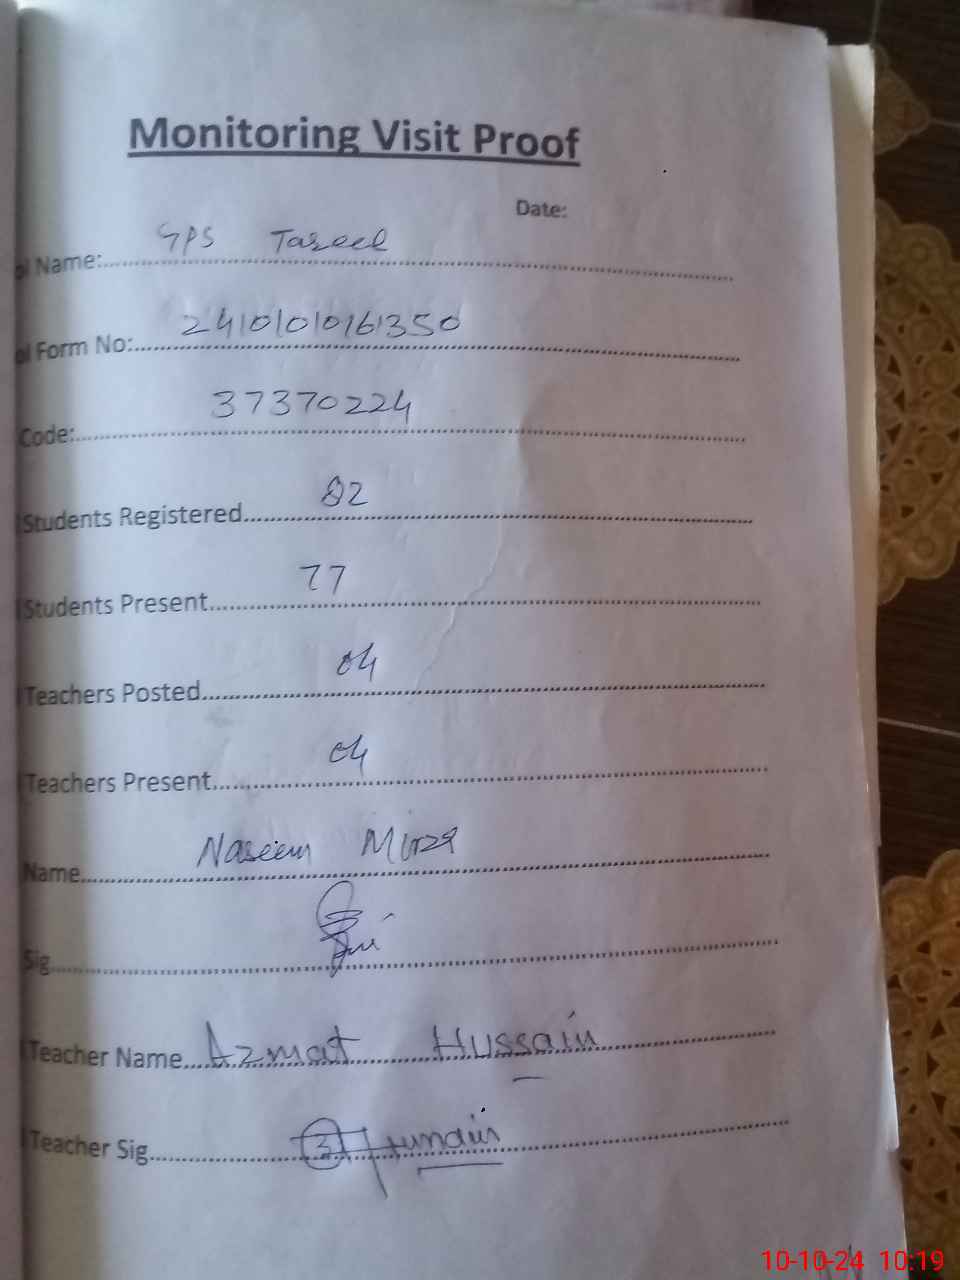 Monitoring Visit Proof
Date:
ol Name: GPS Tareel
ol Form No: 2410101061350
Code: 37370224
Students Registered 82
Students Present 77
Teachers Posted 04
Teachers Present 04
Name Naseem Mirza
Sig
Teacher Name Azmat Hussain
Teacher Sig
10-10-24 10:19